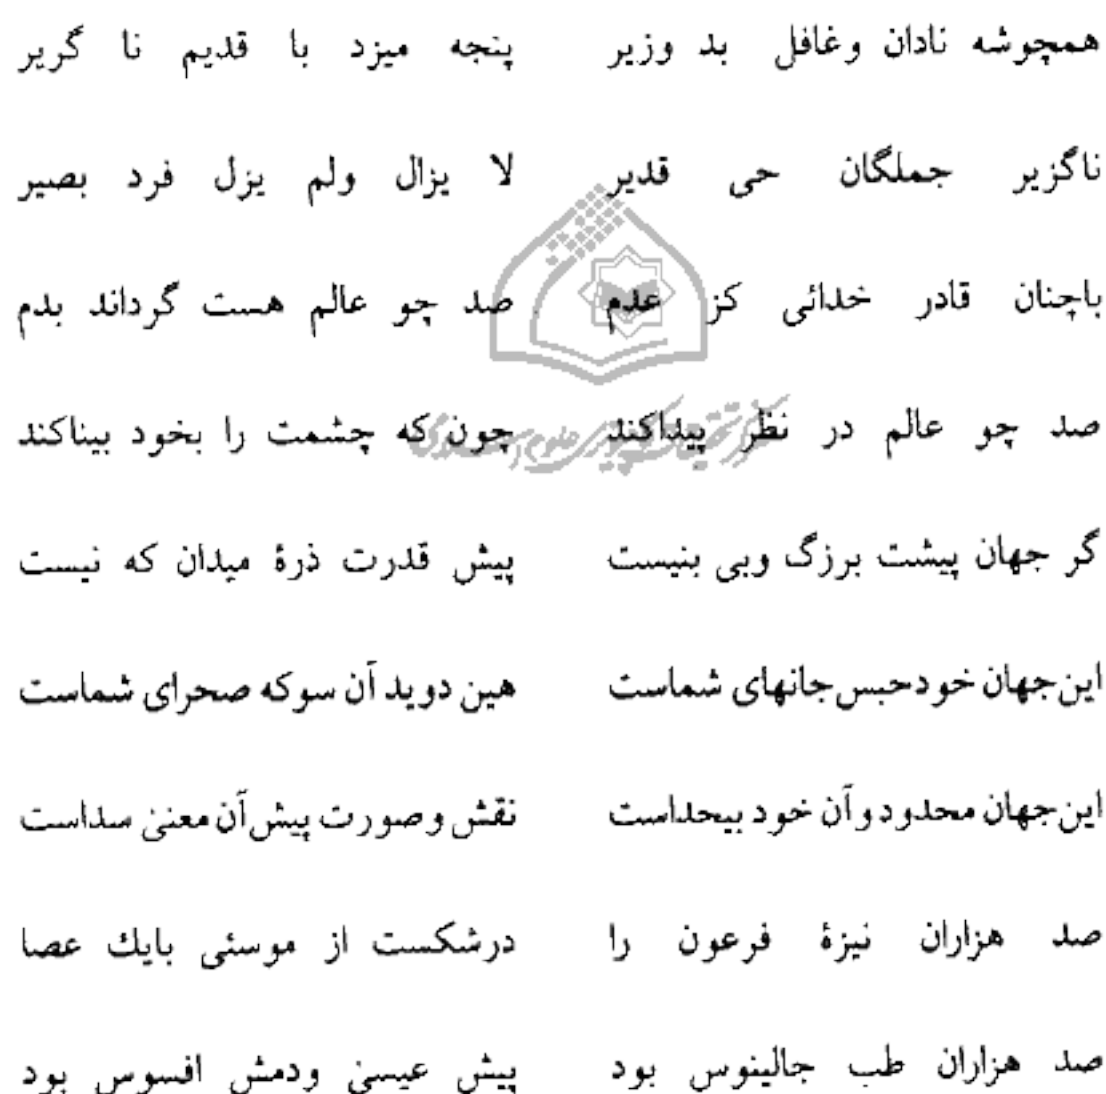 همچوشه نادان وغافل بد وزیر پنجه میزد با قدیم نا گریر
ناگزیر جملگان حی قدیر لا یزال ولم یزل فرد بصیر
باچنان قادر خدائی کز عدم صد چو عالم هست گرداند بدم
صد چو عالم در نظر پیداکند چون که چشمت را بخود بیناکند
گر جهان پیشت برزگ وبی بنیست پیش قدرت ذرۀ میدان که نیست
این جهان خود حبس جانهای شماست هین دوید آن سوکه صحرای شماست
این جهان محدود و آن خود بیحداست نقش و صورت پیش آن معنی سداست
صد هزاران نیزۀ فرعون را درشکست از موسئی بایك عصا
صد هزاران طب جالینوس بود پیش عیسی ودمش افسوس بود